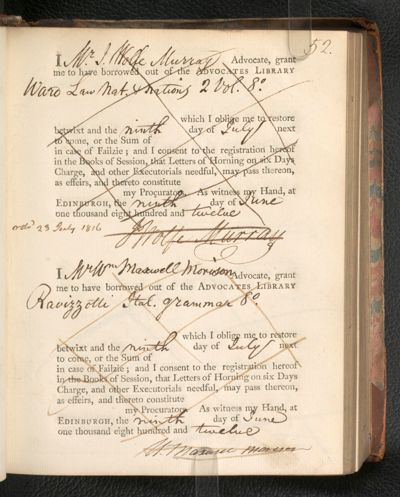 52.
I Mr J. Wolfe Murray Advocate, grant
me to have borrowed out of the ADVOCATES LIBRARY
Ward Law Nat. & Nations 2 Vol. 8o.
which I oblige me to restore
betwixt and the ninth day of July next
to come, or the Sum of
in case of Failzie; and I consent to the registration hereof
in the Books of Session, that Letters of Horning on six Days
Charge, and other Executorials needful, may pass thereon,
as effeirs, and thereto constitute
my Procurators. As witness my Hand, at
EDINBURGH, the ninth day of June
one thousand eight hundred and twelve
23 July 1816
J Wolfe Murray
I Mr Wm Maxwell Morison Advocate, grant
me to have borrowed out of the ADVOCATES LIBRARY
Ravizzotti Ital. grammar 8o.
which I oblige me to restore
betwixt and the ninth day of July next
to come, or the Sum of
in case of Failzie; and I consent to the registration hereof
in the Books of Session, that Letters of Horning on six Days
Charge, and other Executorials needful, may pass thereon,
as effeirs, and thereto constitute
my Procurators. As witness my Hand, at
EDINBURGH, the ninth day of June
one thousand eight hundred and twelve
W Maxwell Morison